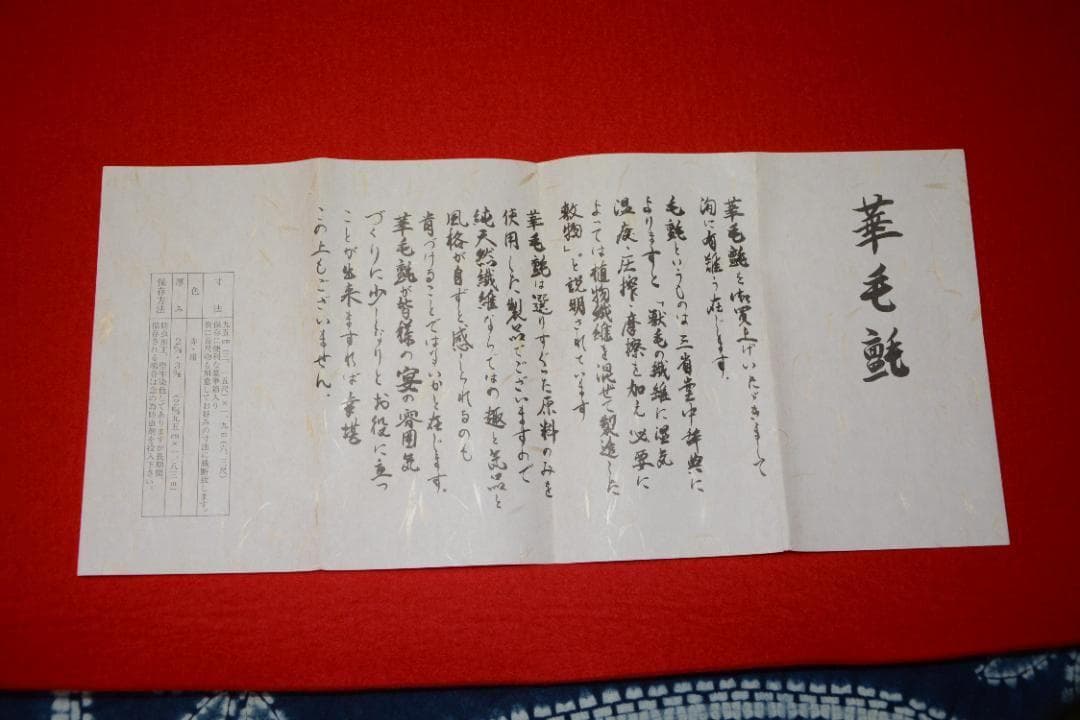 華毛氈
華毛氈を御買上げいただきまして
洵に有難う存じます。
毛氈というものは三省堂中辞典に
よりますと「獣毛の繊維に湿気
温度・圧搾・摩擦を加え必要に
よっては植物繊維を混ぜて製造した
敷物」。と説明されています
華毛氈は選りすぐった原料のみを
使用した製品でございますので
純天然繊維ならではの趣と気品と
風格が自ずと感じられるのも
肯づけることではないかと存じます。
華毛氈が皆様の宴の雰囲気
づくりに少しなりとお役に立つ
ことが出来ますれば幸甚
この上もございません。
寸法
保存に便利な
色
赤・紺
厚み
保存方法